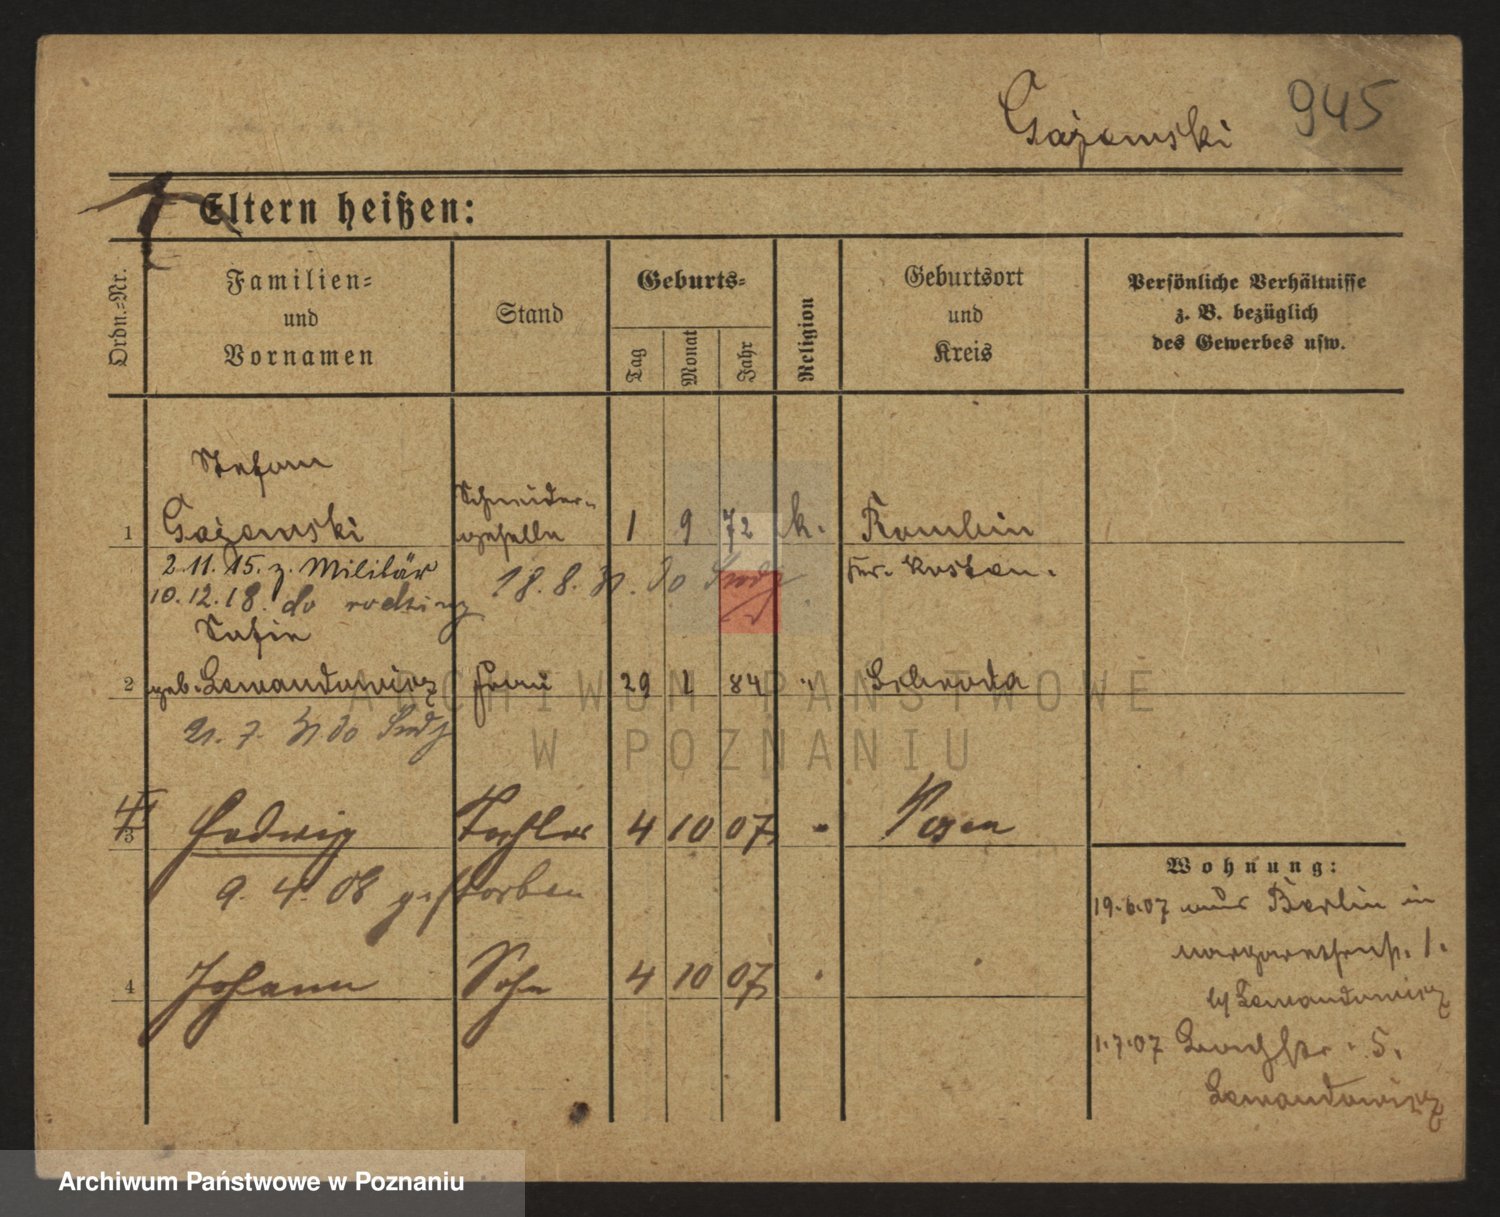 Gajewski 945
Eltern heißen:
Ordn.-Nr.
Familien-
und
Vornamen
Stand
Geburts-
Tag
Monat
Jahr
Religion
Geburtsort
und
Kreis
Persönliche Verhältnisse
z. B. bezüglich
des Gewerbes usw.
Stefan
Schneider-
1 Gajewski geselle 1 9 72 k. Rombin
2.11.15. z. Militär Kr. Kosten.
10.12.18. do rodziny 18.8. do
Sofie
2 geb. Lewandowicz Frau 29 1 84 " Schroda
21. 7. do
3 Hedwig Tochter 4 10 07 " Posen
9. 4. 08 gestorben
4 Johann Sohn 4 10 07
Wohnung:
19.6.07 aus Berlin in
Margarethenstr. 1.
b/ Lewandowicz
1.7.07 5.
Lewandowicz
ARCHIWUM PAŃSTWOWE
W POZNANIU
Archiwum Państwowe w Poznaniu